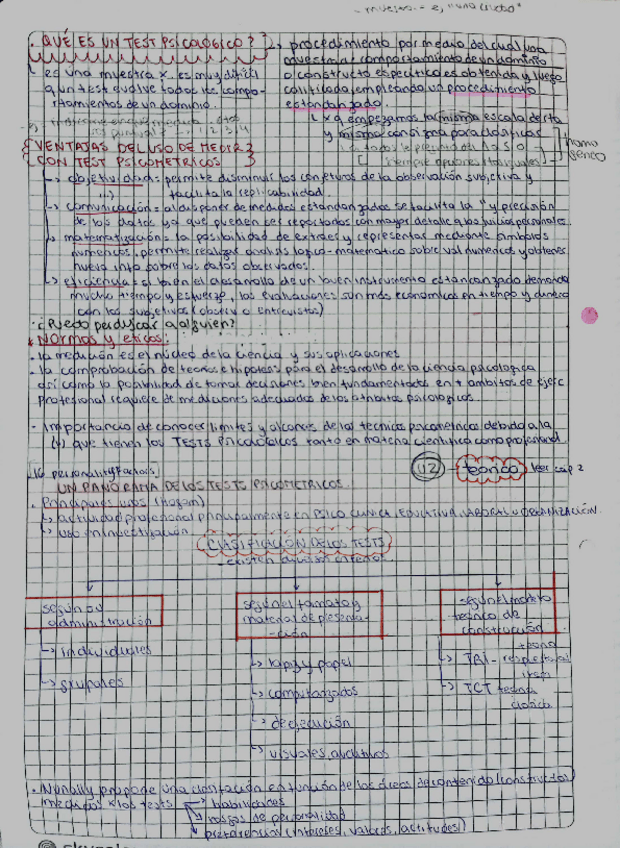 - muestra - e, "una crubo"
· QUÉ ES UN TEST PSICOLÓGICO?
↳ procedimiento por medio del cual una
muestra de comportamiento de un dominio
↳ es una muestra x. es muy dificil
o constructo específico es obtenida y luego
q un test evalue todos los compo-
calificada, empleando un procedimiento
rtamientos de un dominio.
estandarizado.
↳ x q empezamos la misma escala de rta
y misma consigna para clasificar
VENTAJAS DEL USO DE MEDIR
CON TEST PSICOMETRICOS
siempre opciones
homo
geneo
↳ objetividad = permite disminuir las conjeturas de la observación subjetiva y
facilita la replicabilidad.
↳ comunicación = al disponer de medidas estandarizadas se facilita la " y precisión
de los datos ya que pueden ser reportados con mayor detalle q los juicios personales.
↳ matematización = la posibilidad de extraer y representar mediante simbolos
numericos, permite realizar analisis logico-matematico sobre val numericos y obtener
nueva info sobre los datos observados.
↳ eficiencia = si bien el desarrollo de un buen instrumento estandarizado demanda
mucho tiempo y esfuerzo, las evaluaciones son más economicas en tiempo y dinero
con las subjetivas (observ o entrevistas)
¿Puedo perjudicar a alguien?
* Normas y eticos:
- la medición es el núcleo de la ciencia y sus aplicaciones
- la comprobación de teorias e hipotesis para el desarrollo de la ciencia psicologica
así como la posibilidad de tomar decisiones bien fundamentadas en + ambitos de ejerc
profesional requiere de mediciones adecuadas de los atributos psicologicos.
- Importancia de conocer limites y alcances de las tecnicas psicometricas debido a la
(+) que tienen los TESTS PSICOLOGICOS tanto en materia cientifica como profesional
16 personality factors
U2 - teorico leer cap 2
UN PANORAMA DE LOS TESTS PSICOMETRICOS.
· Principales usos (hogan)
↳ actividad profesional principalmente en PSICO CLINICA, EDUCATIVA, LABORAL U ORGANIZACIÓN.
↳ uso in investigación
CLASIFICACION DE LOS TESTS
existen diversos criterios
según su
administración
↳ individuales
↳ grupales
según el formato y
material de presenta-
ción
↳ lapiz y papel
↳ computarizados
↳ de ejecución
↳ visuales, auditivos
según el modelo
teorico de
construcción
↳ TRI - teoria respta al item
↳ TCT teoria clasica
· Nunally propone una clasificación en función de las áreas de contenido (constructos)
medidos x los tests → habilidades
rasgos de personalidad
preferencias (intereses, valores, actitudes)